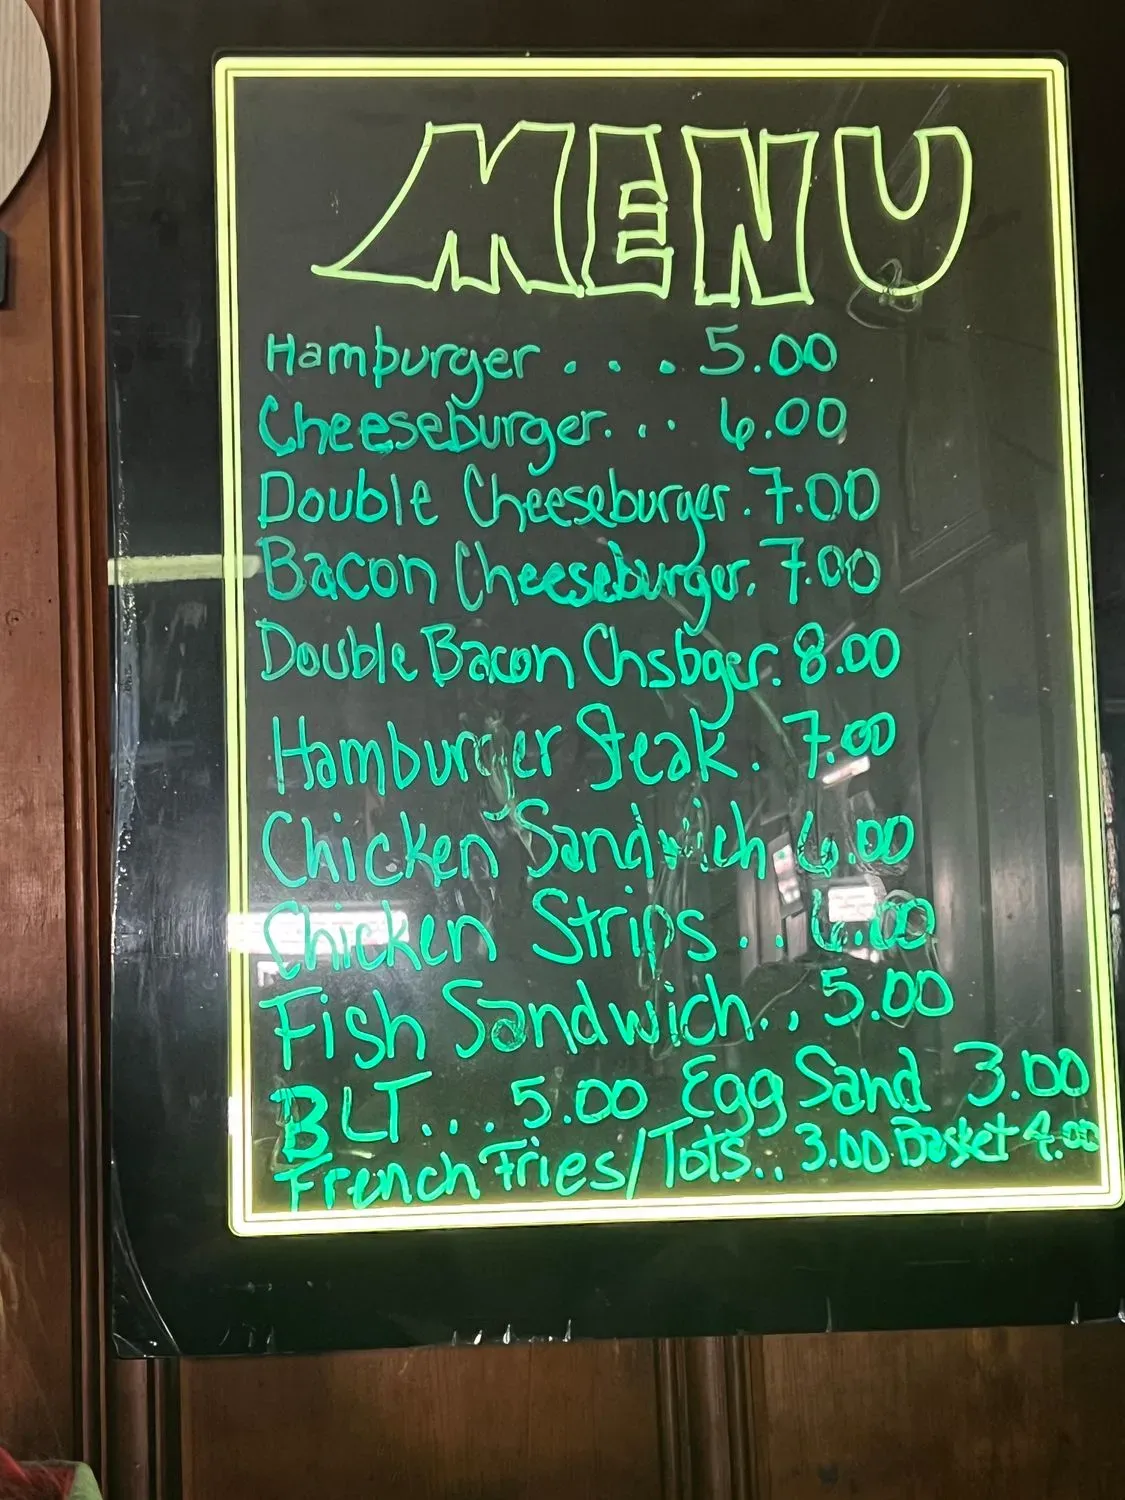 MENU
Hamburger . . . 5.00
Cheeseburger. . . 6.00
Double Cheeseburger . 7.00
Bacon Cheeseburger. 7.00
Double Bacon Chsbger. 8.00
Hamburger Steak . 7.00
Chicken Sandwich 6.00
Chicken Strips . . 6.00
Fish Sandwich. . 5.00
BLT . . . 5.00 Egg Sand 3.00
French Fries/Tots. . 3.00 Basket 4.00